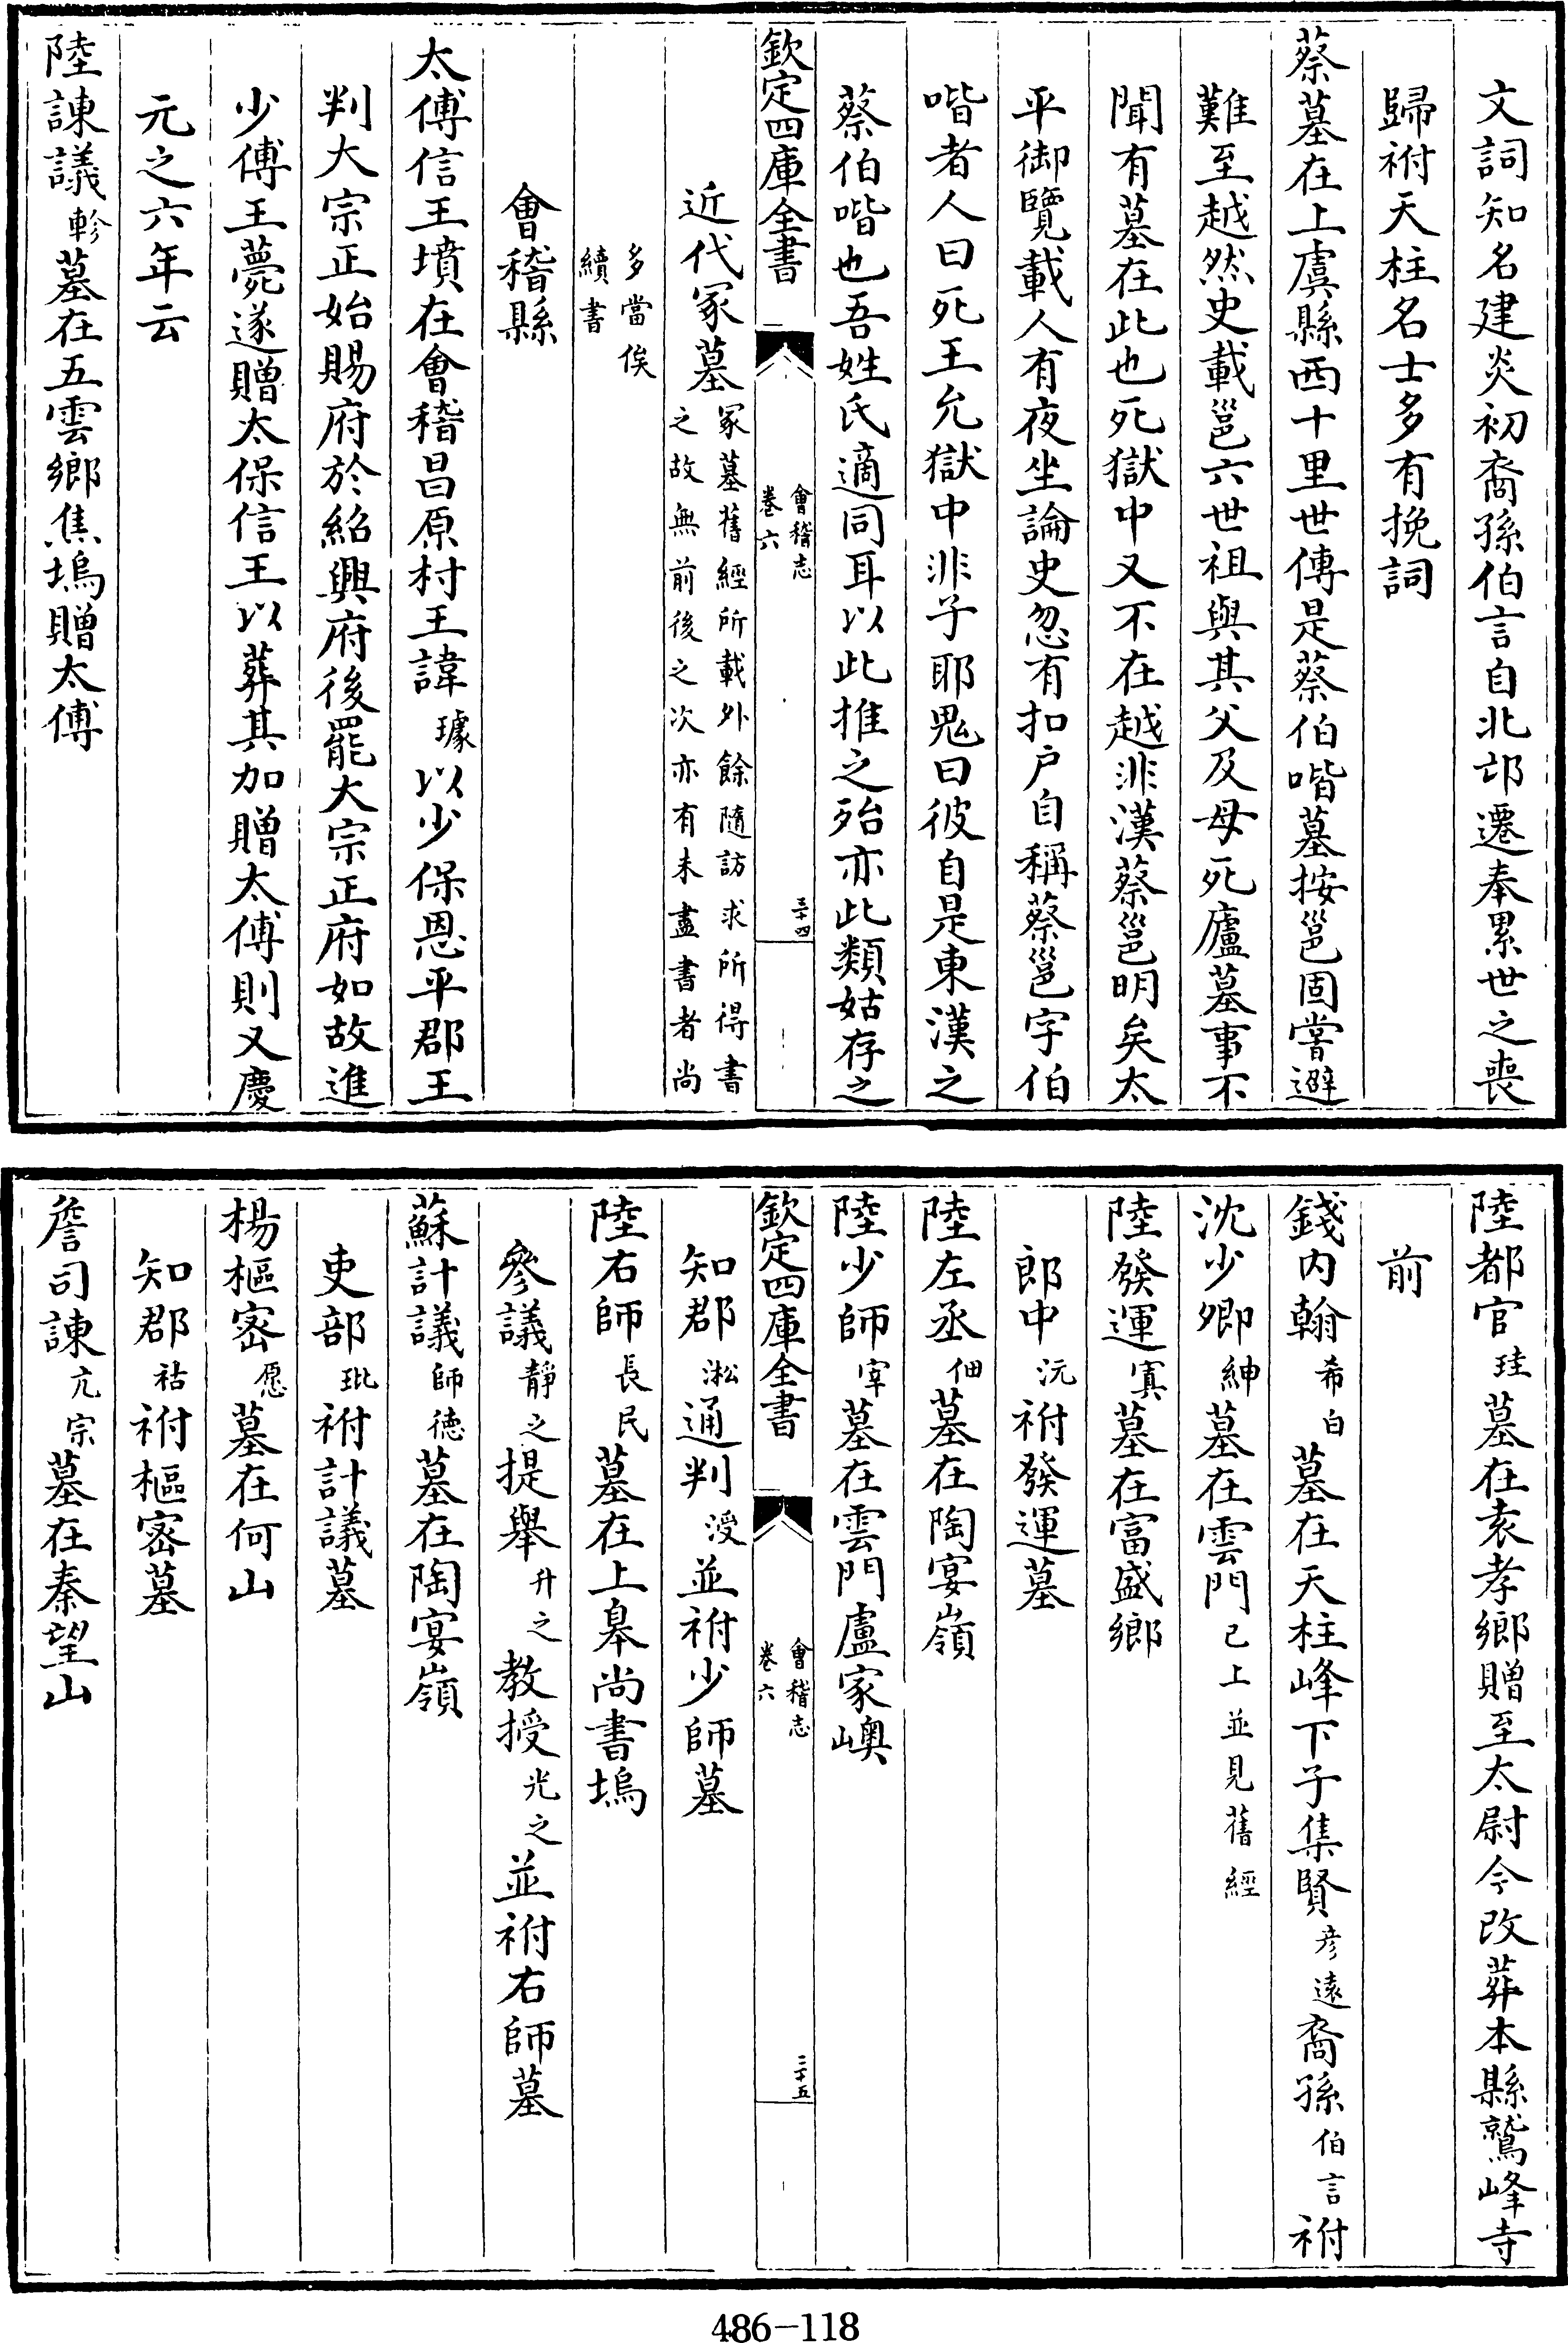 文詞知名建炎初裔孫伯言自北邙遷奉累世之喪
歸祔天柱名士多有挽詞
蔡墓在上虞縣西十里世傳是蔡伯喈墓按邕固嘗避
難至越然史載邕六世祖與其父及母死廬墓事不
聞有墓在此也死獄中又不在越非漢蔡邕明矣太
平御覽載人有夜坐論史忽有扣户自稱蔡邕字伯
喈者人曰死王允獄中非子耶鬼曰彼自是東漢之
蔡伯喈也吾姓氏適同耳以此推之殆亦此類姑存之
欽定四庫全書
會稽志
卷六
三十四
近代冢墓冢墓舊經所載外餘隨訪求所得書
之故無前後之次亦有未盡書者尚
多當俟
續書
會稽縣
太傅信王墳在會稽昌原村王諱璩以少保恩平郡王
判大宗正始賜府於紹興府後罷大宗正府如故進
少傅王薨遂贈太保信王以葬其加贈太傅則又慶
元之六年云
陸諫議軫墓在五雲鄉焦塢贈太傅
陸都官珪墓在袁孝鄉贈至太尉今改葬本縣鷲峰寺
前
錢内翰希白墓在天柱峰下子集賢彦遠裔孫伯言祔
沈少卿紳墓在雲門已上並見舊經
陸發運寘墓在富盛鄉
郎中沅祔發運墓
陸左丞佃墓在陶宴嶺
陸少師宰墓在雲門盧家嶴
欽定四庫全書
會稽志
卷六
三十五
知郡淞通判㴋並祔少師墓
陸右師長民墓在上臯尚書塢
參議静之提舉升之教授光之並祔右師墓
蘇計議師德墓在陶宴嶺
吏部玭祔計議墓
楊樞密愿墓在何山
知郡祜祔樞密墓
詹司諫亢宗墓在秦望山
486-118